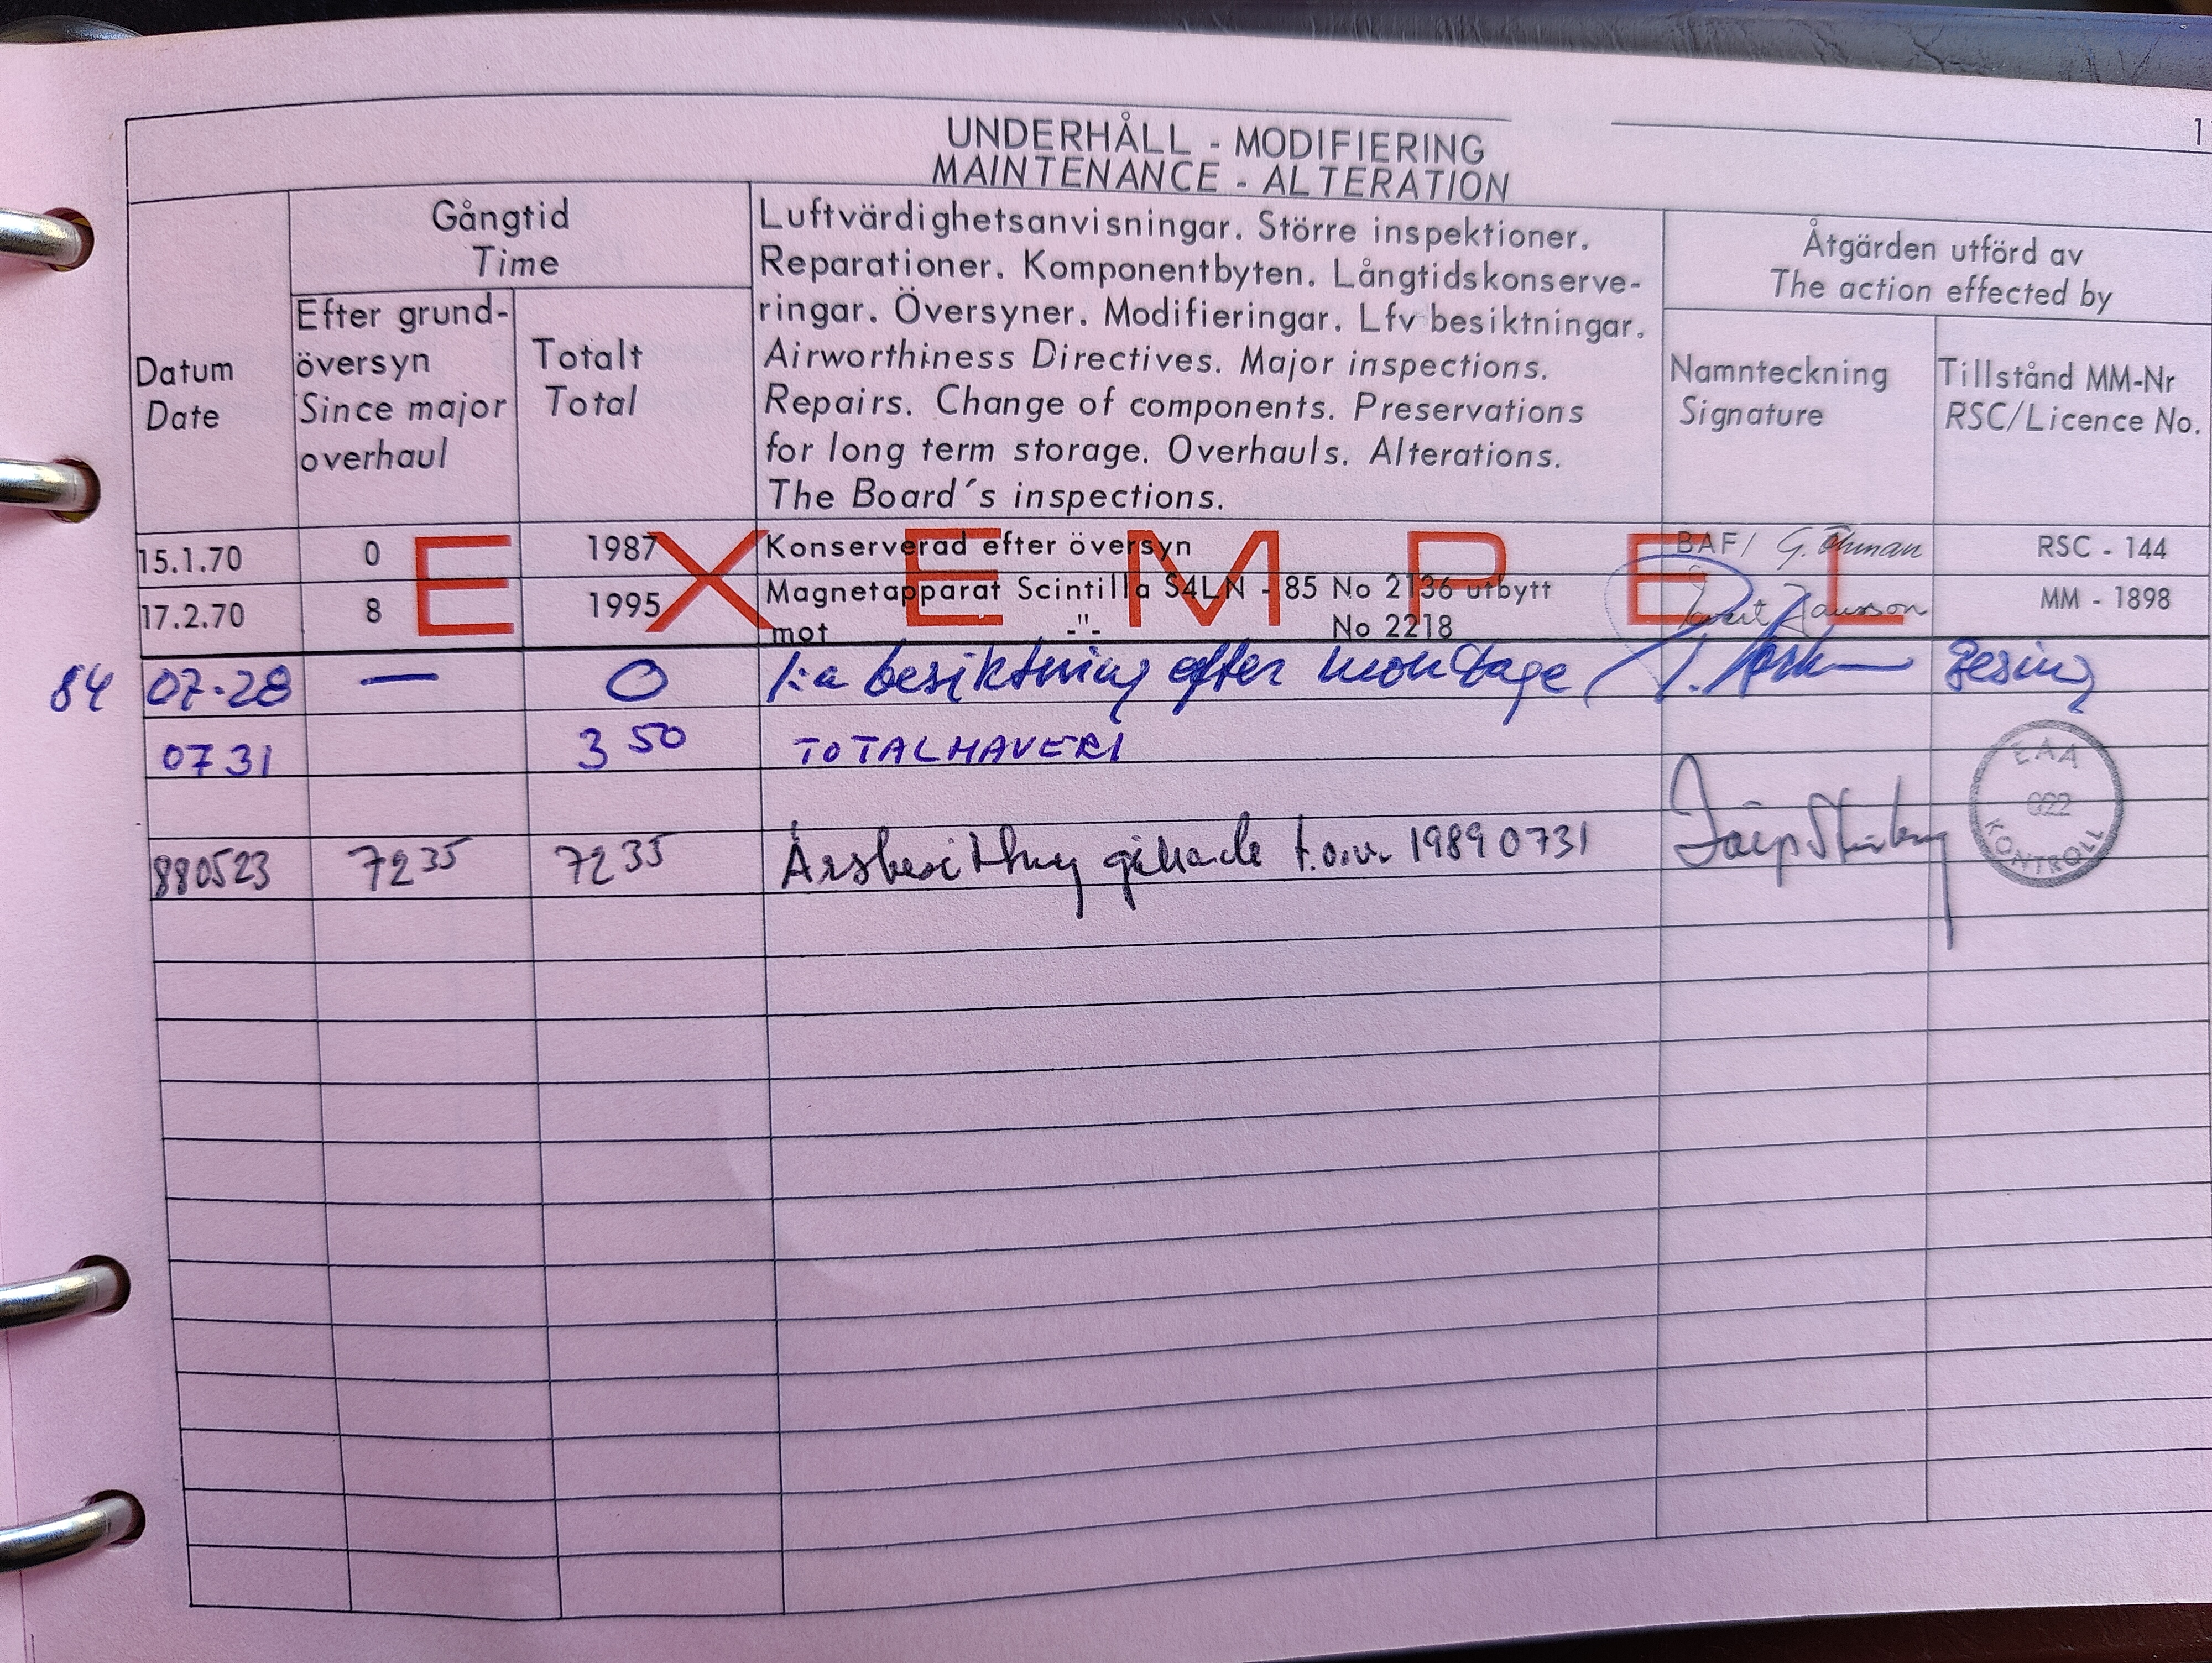 1
UNDERHÅLL - MODIFIERING
MAINTENANCE - ALTERATION
Datum
Date
Gångtid
Time
Efter grund-
översyn
Since major
overhaul
Totalt
Total
Luftvärdighetsanvisningar. Större inspektioner.
Reparationer. Komponentbyten. Långtidskonserve-
ringar. Översyner. Modifieringar. Lfv besiktningar.
Airworthiness Directives. Major inspections.
Repairs. Change of components. Preservations
for long term storage. Overhauls. Alterations.
The Board´s inspections.
Åtgärden utförd av
The action effected by
Namnteckning
Signature
Tillstånd MM-Nr
RSC/Licence No.
EXEMPEL
15.1.70 0 1987 Konserverad efter översyn BAF/ G. Öhman RSC - 144
17.2.70 8 1995 Magnetapparat Scintilla S4LN - 85 No 2136 utbytt MM - 1898
mot -"- No 2218
84 07-28 — 0 1:a besiktning efter montage
0731 3 50 TOTALHAVERI
880523 72 35 72 35 Årsbesiktning t.o.m. 19890731
EAA
022
KONTROLL